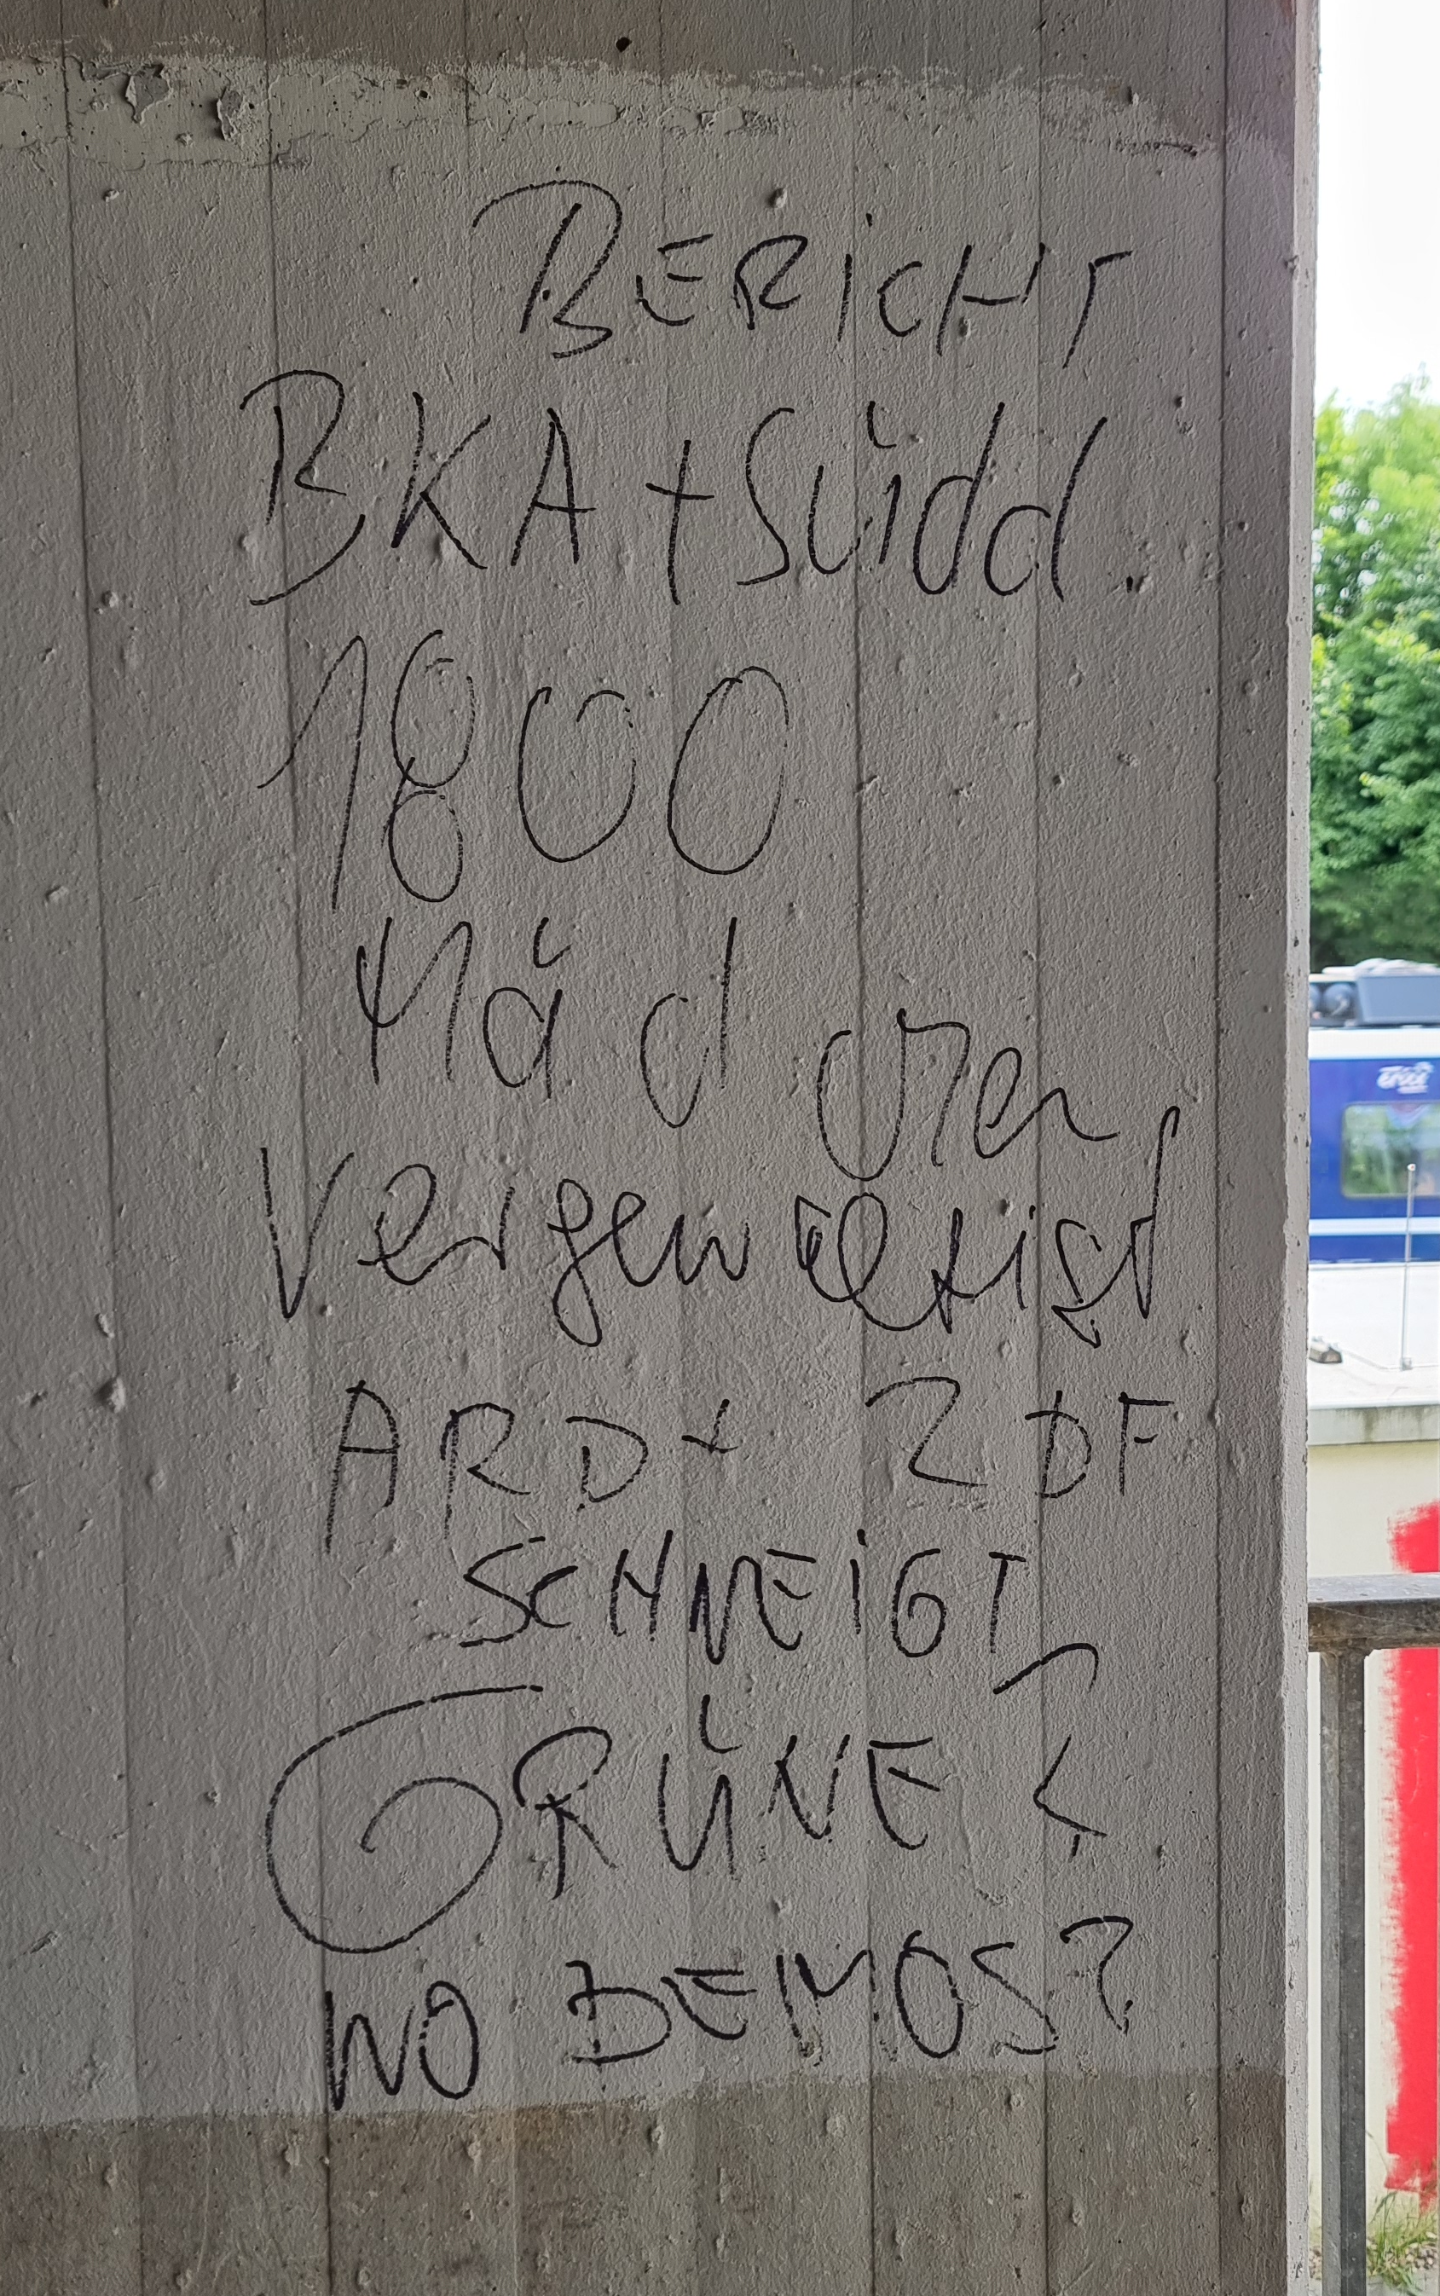 BERICHT
BKA + Südd.
1800
Mädchen
vergewaltigt
ARD + ZDF
SCHWEIGT
GRÜNE ?
WO DEMOS?